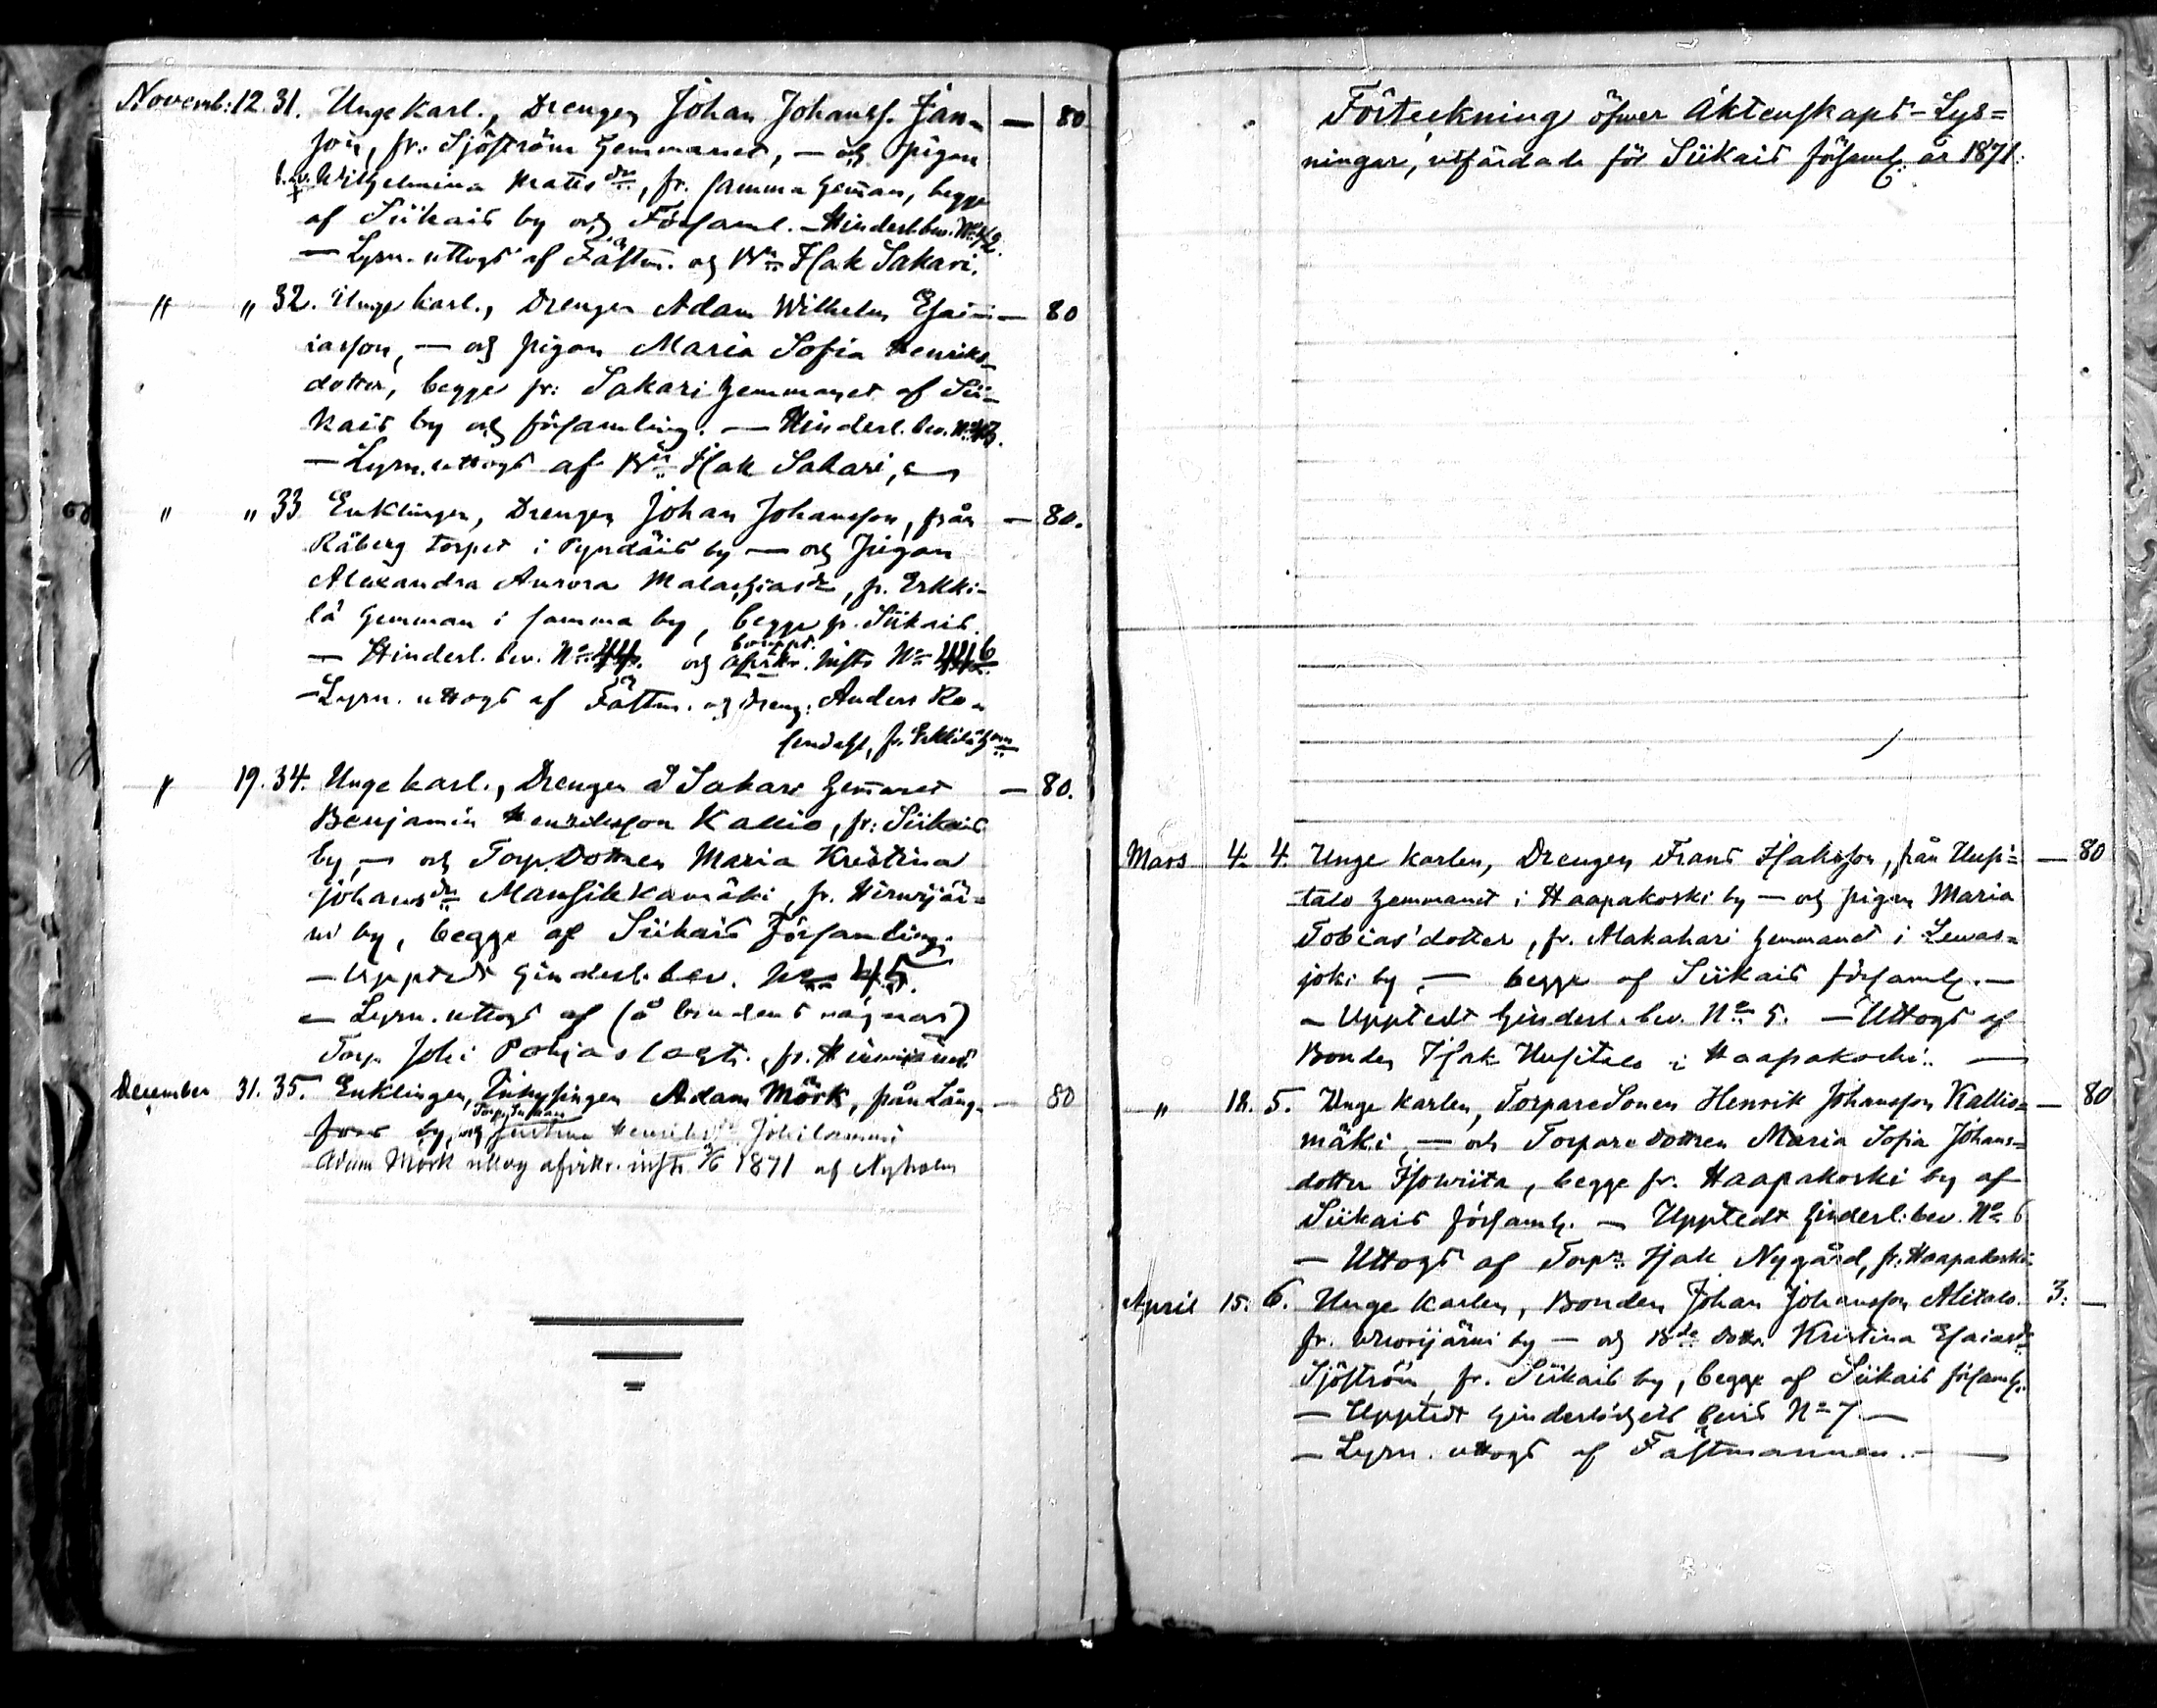 Novemb: 12. 31. Unge karl., Drengen Johan Johanss. Jan- — 80
son, fr. Sjöström hemmanet, — och pigan
b.v. Wilhelmina Matts dr, fr. samma heman, begge
af Siikais by och Församl. — Hindersl.bev. No 42.
— Lysn. uttogs af Fästm. och Bn Isak Sakari.
" " 32. Unge karl., Drengen Adam Wilhelm Esai- — 80
iasson, — och pigan Maria Sofia Henriks-
dotter, begge fr: Sakari hemmanet af Sii-
kais by och församling. — Hindersl. bev. No 43.
— Lysn. uttogs af Bn Isak Sakari, —
" " 33 Enklingen, Drengen Johan Johansson, från — 80.
Råberg torpet i Pyndäis by — och Pigan
Alexandra Aurora Malachiasdr, fr. Erkki-
lä hemman i samma by, begge fr. Siikais.
— Hindersl. bev. No 44. och afvikn. insts No 446
— Lysn. uttogs af Fästm. och dreng: Anders Ro-
sendahl, fr. Erkkilä hem
" 19. 34. Unge karl., Drengen å Sakari hemanet — 80.
Benjamin Henriksson Kallio, fr: Siikais
by, — och Torp. Dottren Maria Kristina
Johans dr Mansikkamäki, fr. Hirwijär-
wi by, begge af Siikais Församling.
— Upptedt hindersl. bev. No 45.
— Lysn. uttogs af (å brudens vägnar)
Torp. Johi Pohjaslagti, fr. Hirwijärwi
December 31. 35. Enklingen, Inhysingen Adam Mörk, från Lång- — 80
fors by, och Justina Henriksdr Johilammi
Torp. Enkan
Adam Mörk uttog afvikn. insts 3/6 1871 af Nyholm
Förteckning öfwer Äktenskaps-Lys=
ningar, utfärdade för Siikais församl. år 1871:
Mars 4. 4. Unge karlen, Drengen Frans Isaksson, från Uusi= — 80
talo hemmanet i Haapakoski by — och pigan Maria
Tobias'dotter, fr. Alakahari hemmanet i Lewas=
joki by, — begge af Siikais församl. —
— Upptedt hindersl. bev. No 5. — Uttogs af
Bonden Isak Uusitalo i Haapakoski. —
— " 18. 5. Unge karlen, TorpareSonen Henrik Johansson Kallio= — 80
mäki, — och Torparedottren Maria Sofia Johans=
dotter Isowiita, begge fr. Haapakoski by af
Siikais församl. — Upptedt hindersl: bev. No 6
— Uttogs af Torpn Isak Nygård, fr. Haapakoski
April 15. 6. Unge karlen, Bonden Johan Johansson Alitalo. 3. —
fr. Hirwijärwi by — och Bde dottr. Kristina Esaiasdr
Sjöström, fr. Siikais by, begge af Siikais församl.
— Upptedt hinderslöshets bevis No 7 —
— Lysn. uttogs af Fästmannen. —